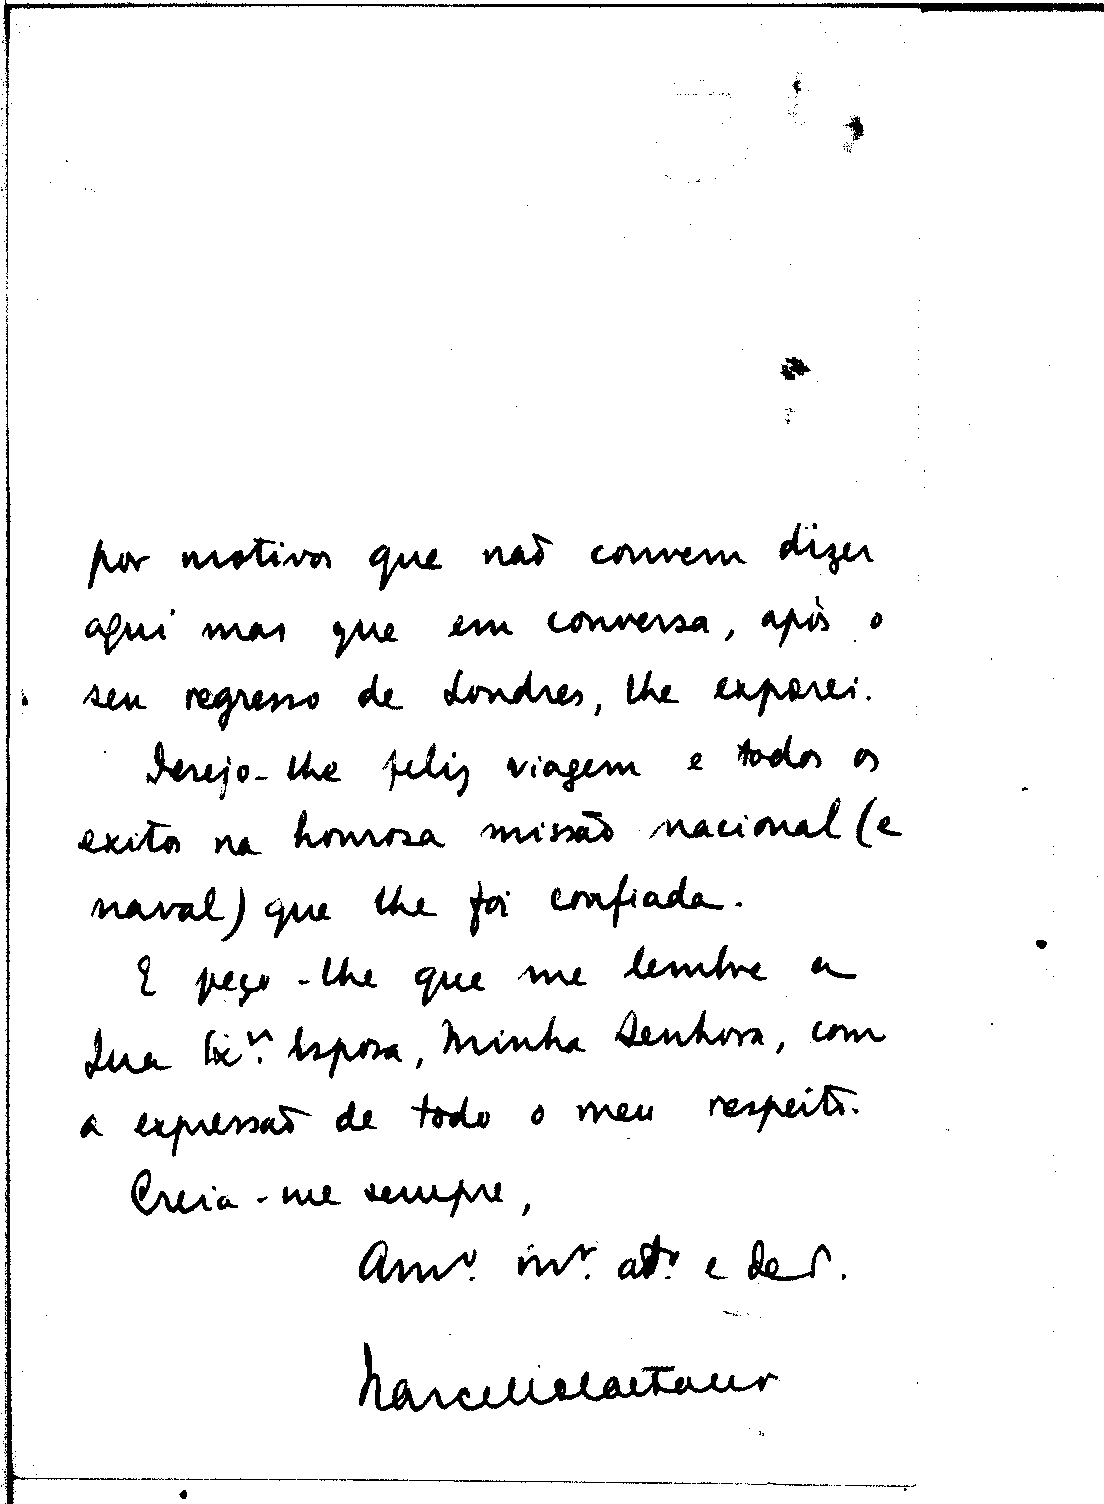 por motivos que não convem dizer
aqui mas que em conversa, após o
seu regresso de Londres, lhe exporei.
Desejo-lhe feliz viagem e todos os
exitos na honrosa missão nacional (e
naval) que lhe foi confiada.
E peço-lhe que me lembre a
Sua Exª. Esposa, Minha Senhora, com
a expressão de todo o meu respeito.
Creia-me sempre,
Amº. mº. atº. e
Marcello Caetano